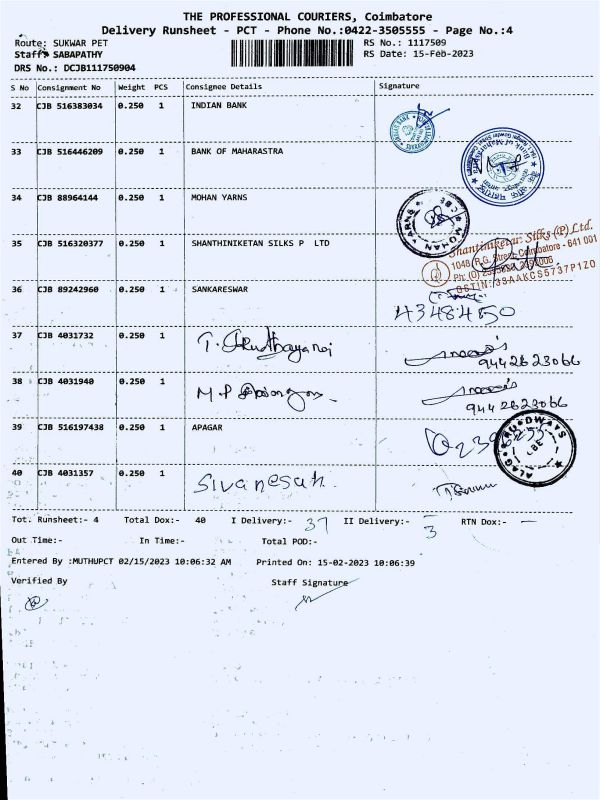 THE PROFESSIONAL COURIERS, Coimbatore
Delivery Runsheet - PCT - Phone No.:0422-3505555 - Page No.:4
Route: SUKWAR PET RS No.: 1117509
Staff: SABAPATHY RS Date: 15-Feb-2023
DRS No.: DCJB111750904
S No Consignment No Weight PCS Consignee Details Signature
32 CJB 516383034 0.250 1 INDIAN BANK
33 CJB 516446209 0.250 1 BANK OF MAHARASTRA
34 CJB 88964144 0.250 1 MOHAN YARNS
MOHAN YARNS CBE
35 CJB 516320377 0.250 1 SHANTHINIKETAN SILKS P LTD
Shantiniketan Silks (P) Ltd.
1048, R.G. Street, Coimbatore - 641 001
36 CJB 89242960 0.250 1 SANKARESWAR
4348450
37 CJB 4031732 0.250 1
9442623066
38 CJB 4031940 0.250 1
9442623066
39 CJB 516197438 0.250 1 APAGAR
40 CJB 4031357 0.250 1 Sivanesan
Tot. Runsheet:- 4 Total Dox:- 40 I Delivery:- 37 II Delivery:- 3 RTN Dox:- —
Out Time:- In Time:- Total POD:-
Entered By :MUTHUPCT 02/15/2023 10:06:32 AM Printed On: 15-02-2023 10:06:39
Verified By Staff Signature